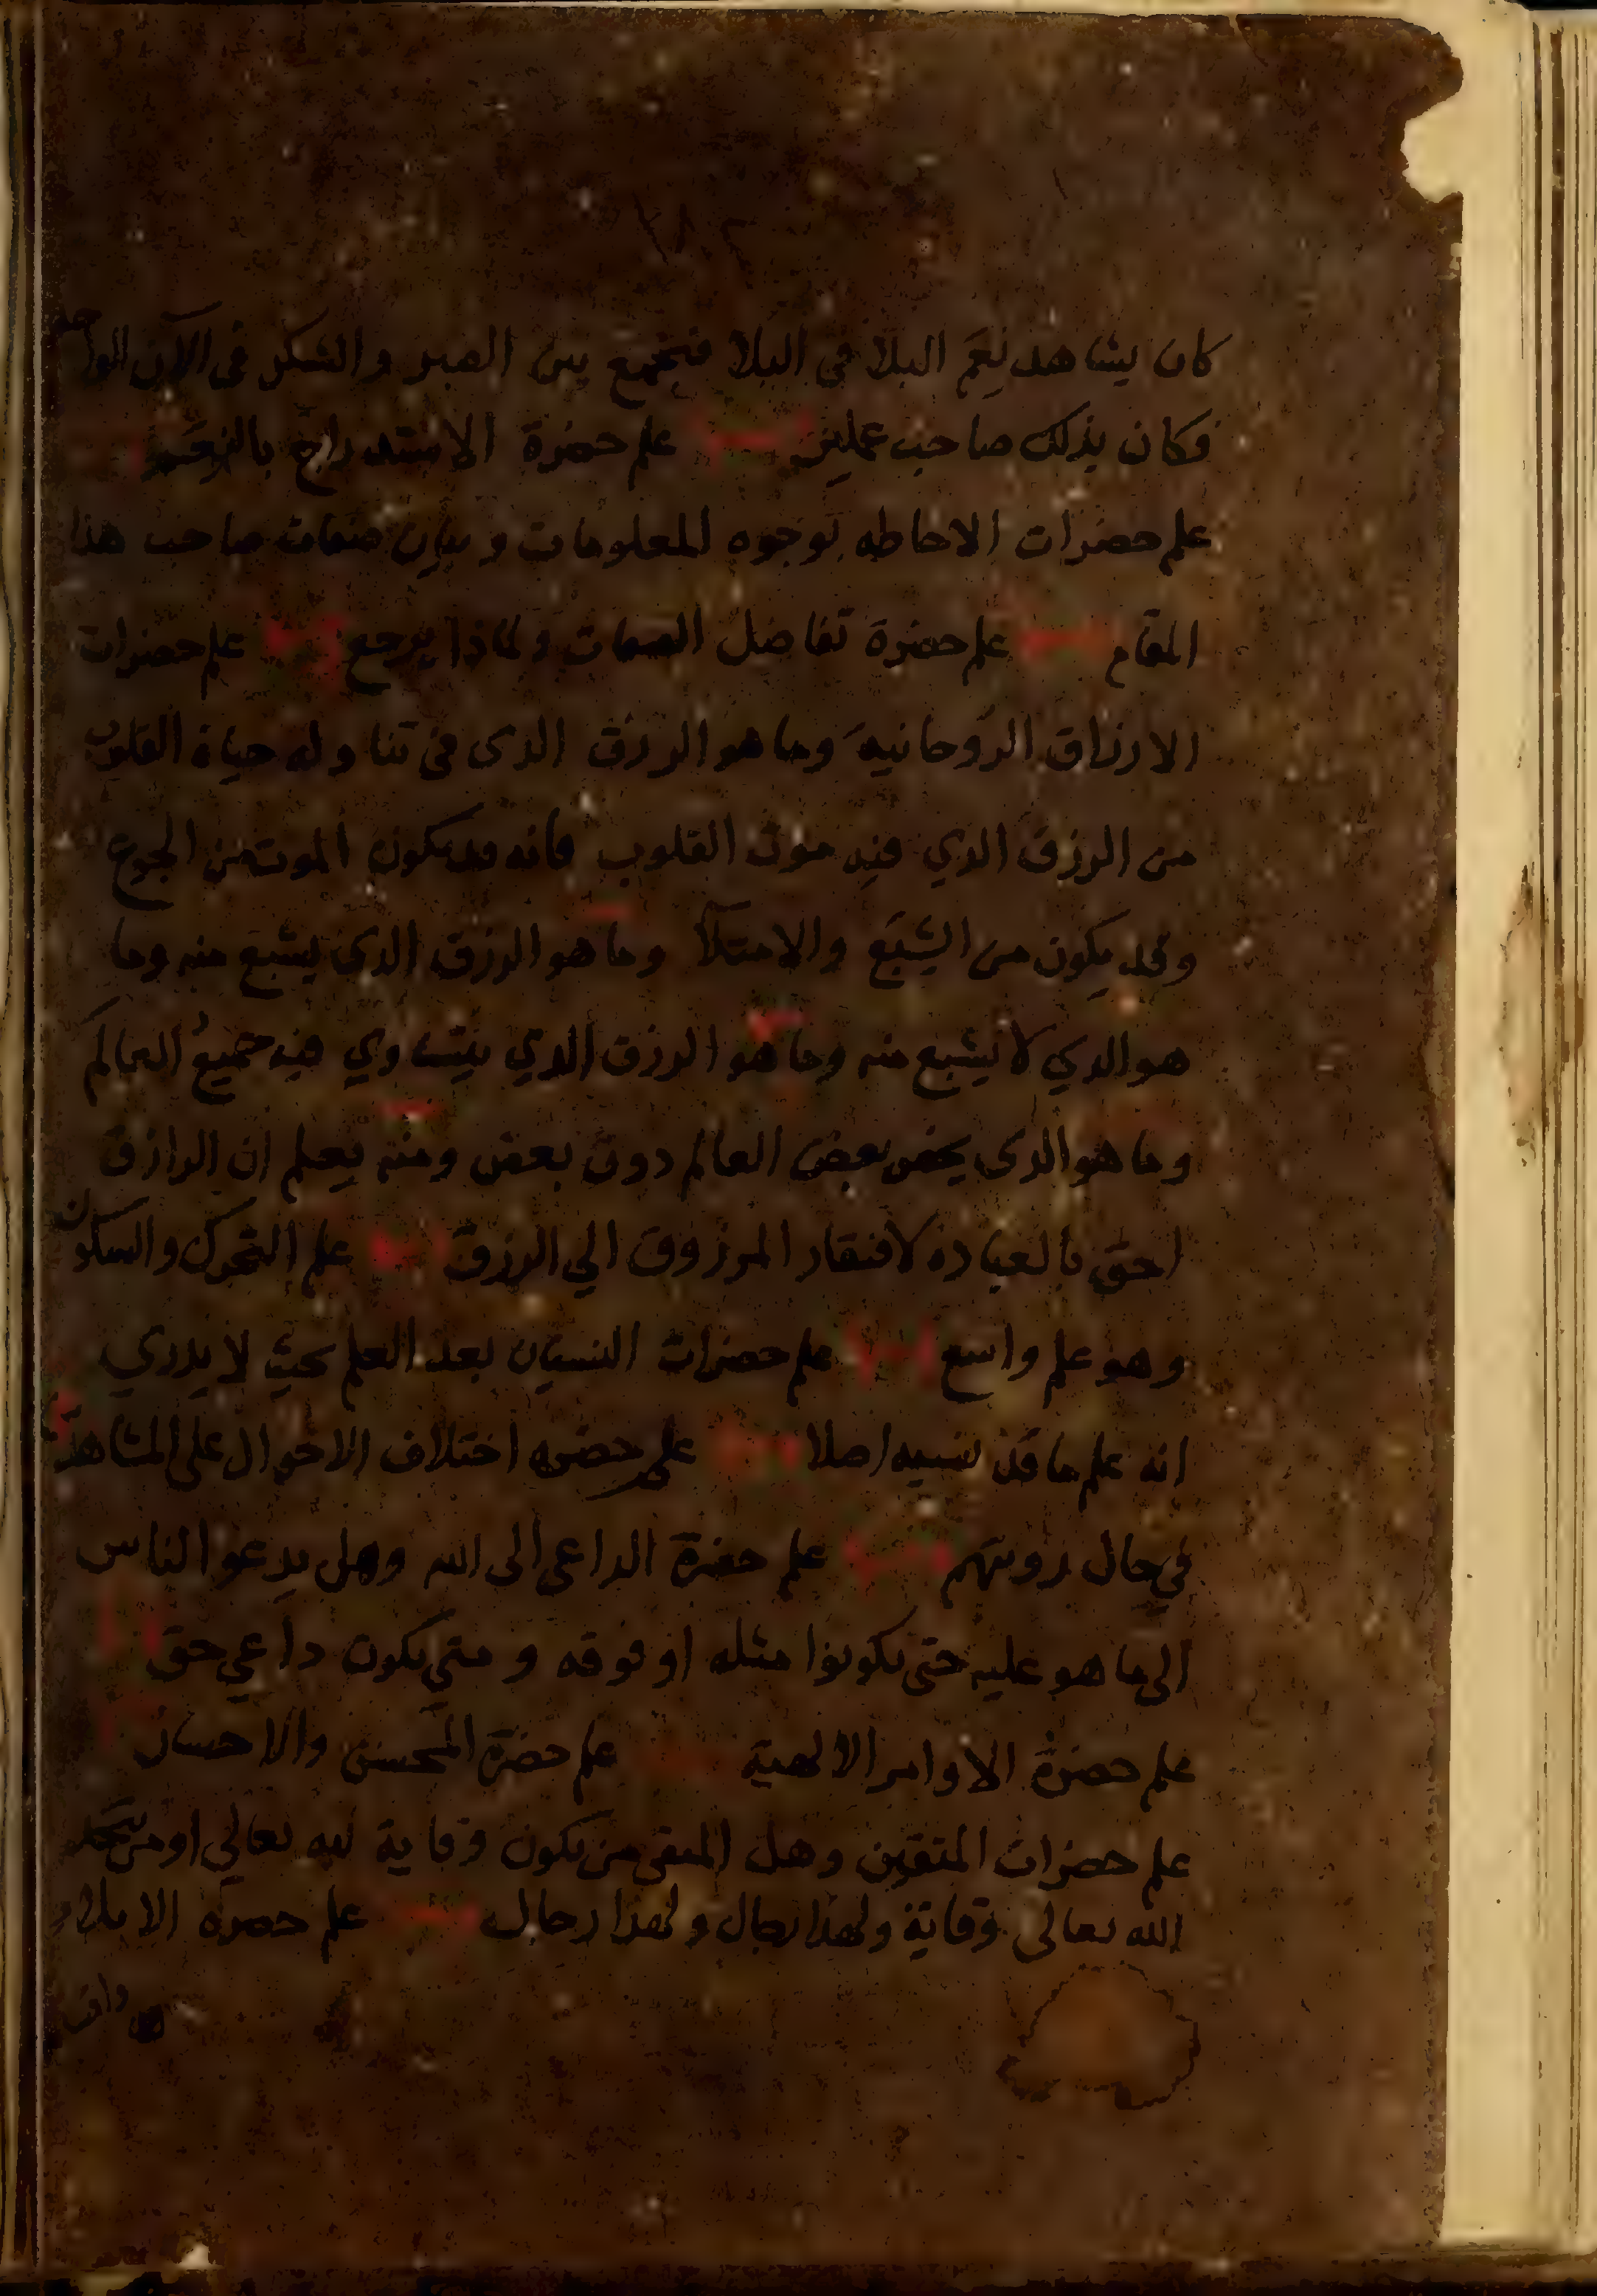 كان يشاهد نعم البلا في البلا فيجمع بين الصبر والشكر في الآن الواحد
فكان بذلك صاحب عملين علم حضرة الاستدراج بالنعم
علم حضرات الاحاطه بوجوه المعلومات وبيان صفات صاحب هذا
المقام علم حضرة تفاضل الصفات ولماذا يرجع علم حضرات
الارزاق الروحانيه وما هو الرزق الذي في تناوله حياة القلوب
من الرزق الذي فيه موت القلوب فانه قد يكون الموت من الجوع
وقد يكون من الشبع والامتلآ وما هو الرزق الذي يشبع منه وما
هو الذي لا يشبع منه وما هو الرزق الذي يتساوي فيه جميع العالم
وما هو الذي يخص بعض العالم دون بعض ومنه يعلم ان الرازق
احق بالعباده لافتقار المرزوق الي الرزق علم التحرك والسكون
وهو علم واسع علم حضرات النسيان بعد العلم بحيث لا يدري
انه علم ما قد نسيه اصلا علم حضره اختلاف الاحوال على المشاهدة
في حال رويتهم علم حضرة الداعي الى الله وهل يدعو الناس
الى ما هو عليه حتى يكونوا مثله او فوقه ومتي يكون داعي حق
علم حضرة الاوامر الالهية علم حضرة المحسن والاحسان
علم حضرات المتقين وهل المتقي من يكون وقاية لله تعالي او من يتخذ
الله تعالى وقاية ولهذا رجال ولهذا رجال علم حضره